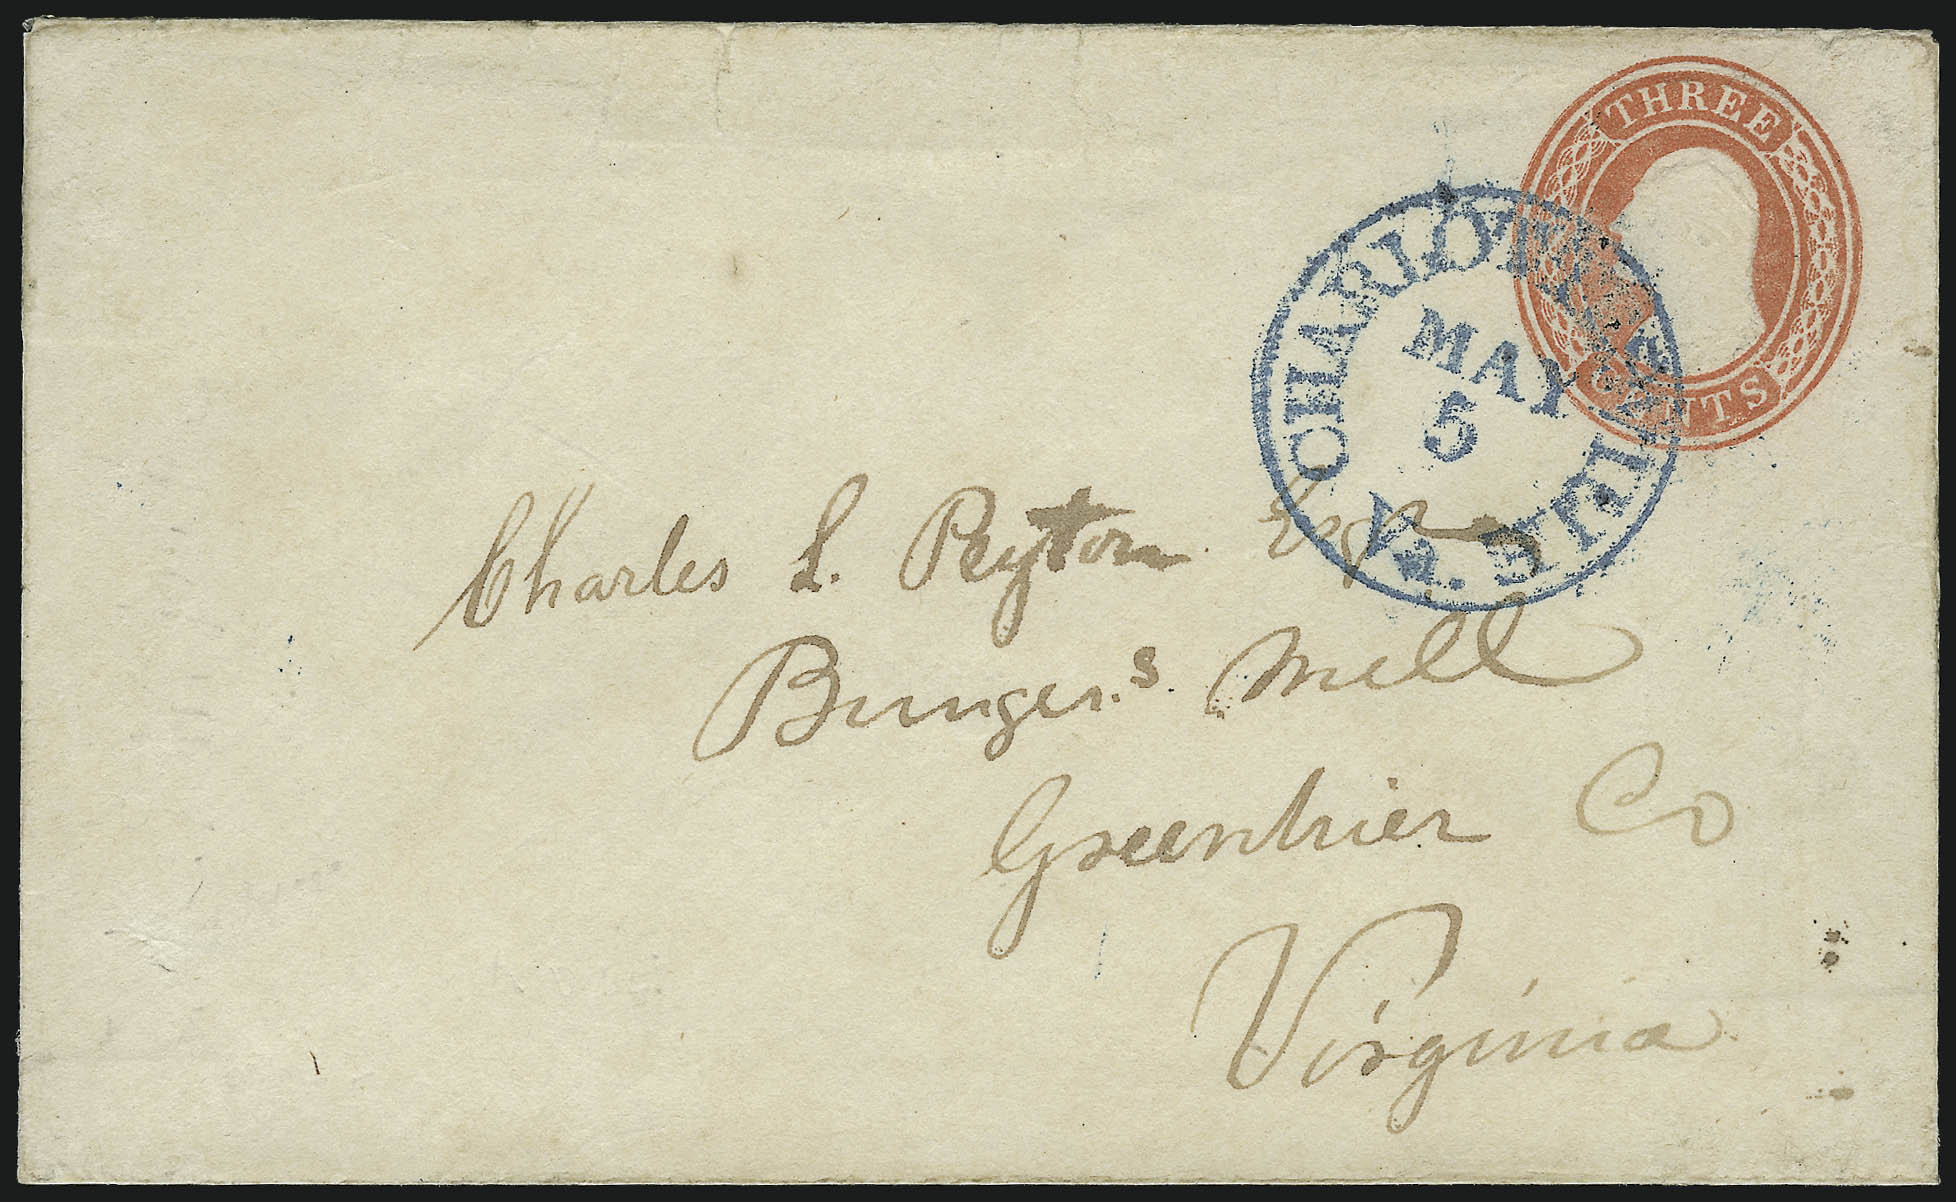 THREE
CENTS
CHARLOTTESVILLE
Va.
MAY
5
Charles L. Peyton Esqr
Bunger.s. Mill
Greenbrier Co
Virginia